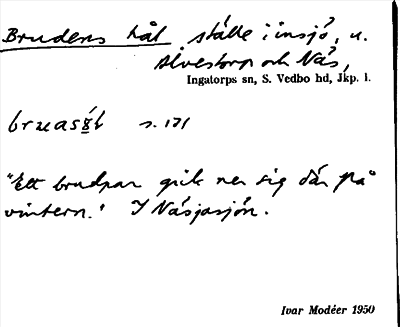 Brudens hål ställe i insjö, u.
Alvestorp och Näs,
Ingatorps sn, S. Vedbo hd, Jkp. l.
s. 171
"Ett brudpar gick ner sig där på
vintern." I Näsjasjön.
Ivar Modéer 1950